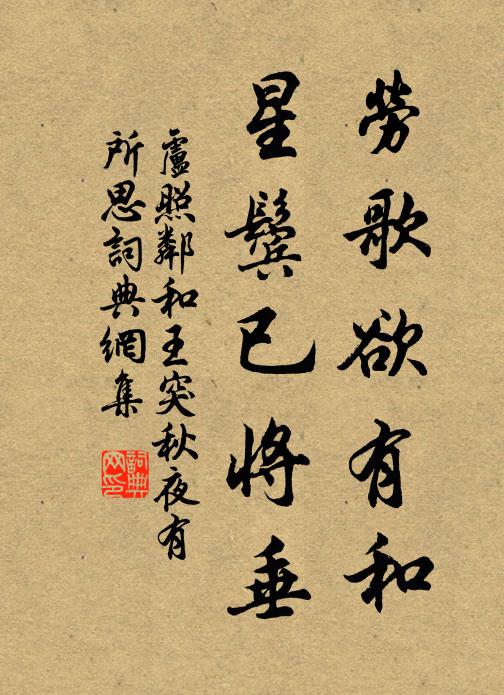 勞歌欲有和
星鬢已將垂
盧照鄰和王突秋夜有
所思詞典網集
詞典
网印